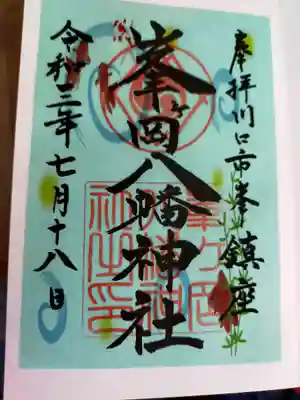 奉拝川口市峯鎮座
峯ヶ岡八幡神社
令和三年七月十八日